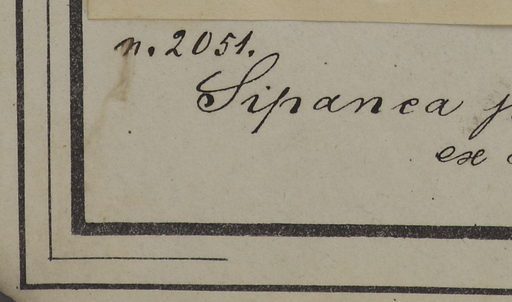 n. 2051.
Sipanea
ex